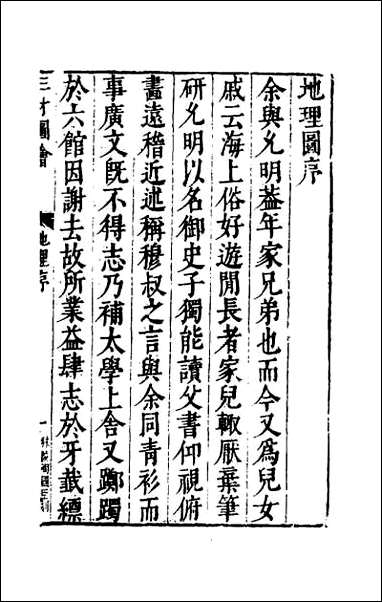 地理圖序
余與允明葢年家兄弟也而今又爲兒女
戚云海上俗好遊閒長者家兒輙厭棄筆
研允明以名御史子獨能讀父書仰視俯
畫遠稽近述稱穆叔之言與余同青衫而
事廣文既不得志乃補太學上舍又躑躅
於六館因謝去故所業益肆志於牙籖縹
三才圖會
地理序
一